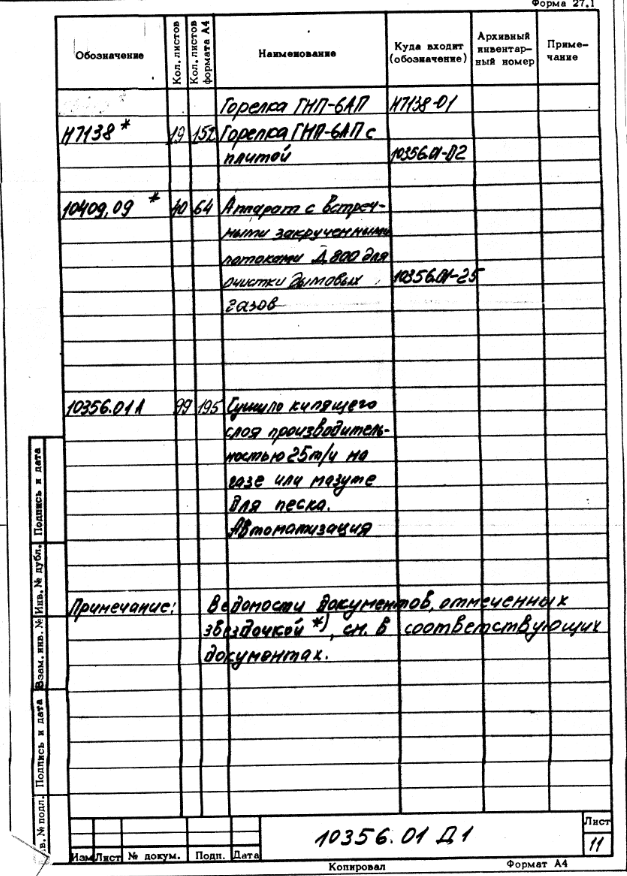 Форма 27.1
Обозначение Кол. листов Кол. листов формата А4 Наименование Куда входит (обозначение) Архивный инвентарный номер Примечание
Горелка ГНП-6АП Н7138-01
Н7138 * 19 152 Горелка ГНП-6АП с
плитой 10356.01-02
10409.09 * 40 64 Аппарат с встреч-
ными закрученными
потоками Д 800 для
очистки дымовых 10356.01-25
газов
10356.01А 99 195 Сушило кипящего
слоя производитель-
ностью 25т/ч на
газе или мазуте
для песка.
Автоматизация
Примечание: Ведомости документов, отмеченных
звездочкой *), см. в соответствующих
документах.
Подпись и дата
Инв. № дубл.
Взам. инв. №
Подпись и дата
в. № подл.
10356.01 Д1
Лист
11
Изм Лист № докум. Подп. Дата
Копировал Формат А4